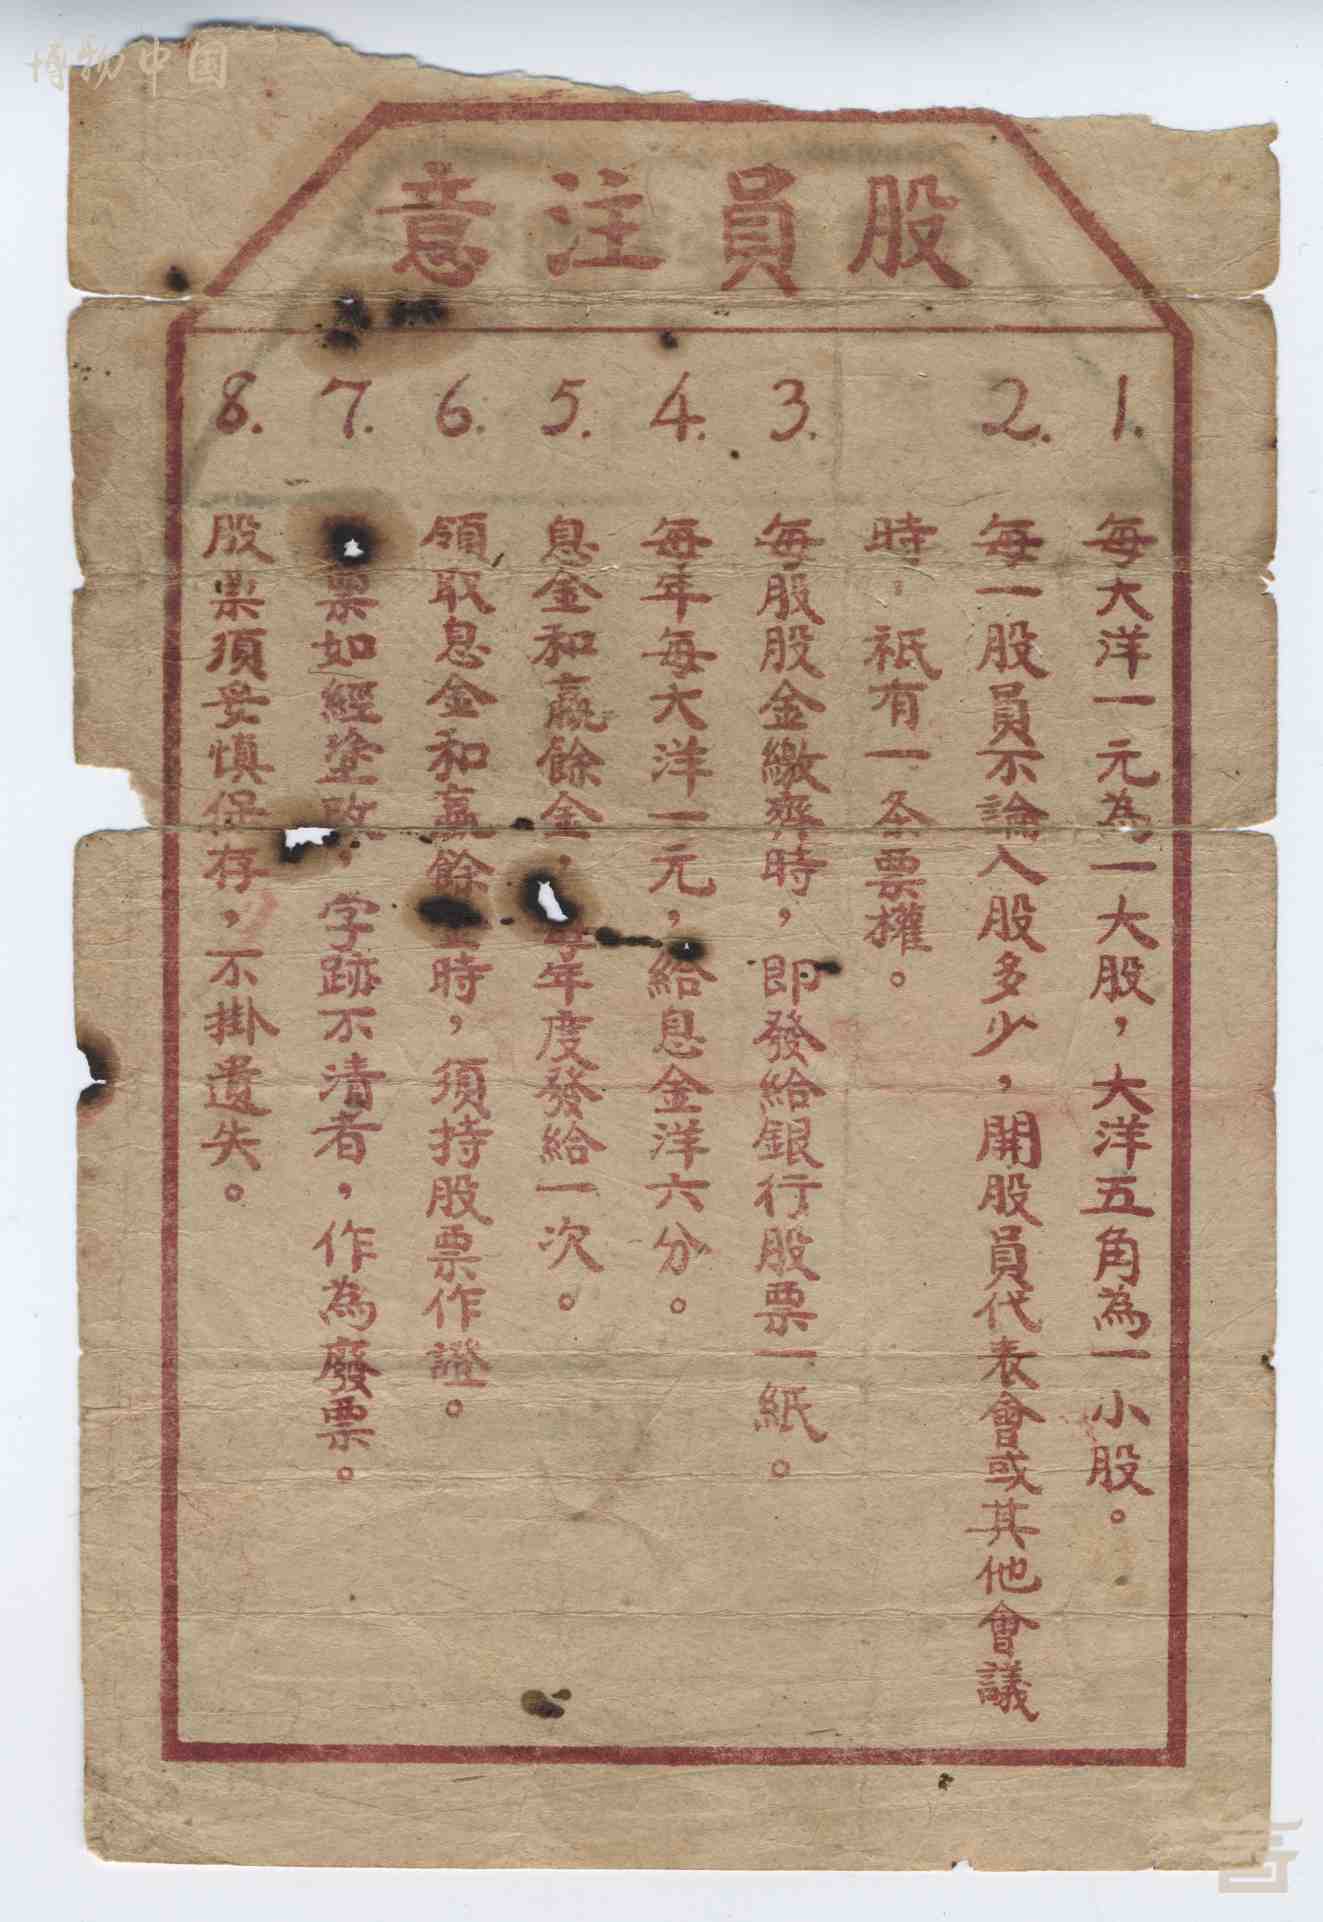 博物中国
股員注意
1. 每大洋一元為一大股，大洋五角為一小股。
2. 每一股員不論入股多少，開股員代表會或其他會議
時，祇有一仝票權。
3. 每股股金繳齊時，即發給銀行股票一紙。
4. 每年每大洋一元，給息金洋六分。
5. 息金和贏餘金，每年度發給一次。
6. 領取息金和贏餘金時，須持股票作證。
7. 票如經塗改，字跡不清者，作為廢票。
8. 股票須妥慎保存，不掛遺失。